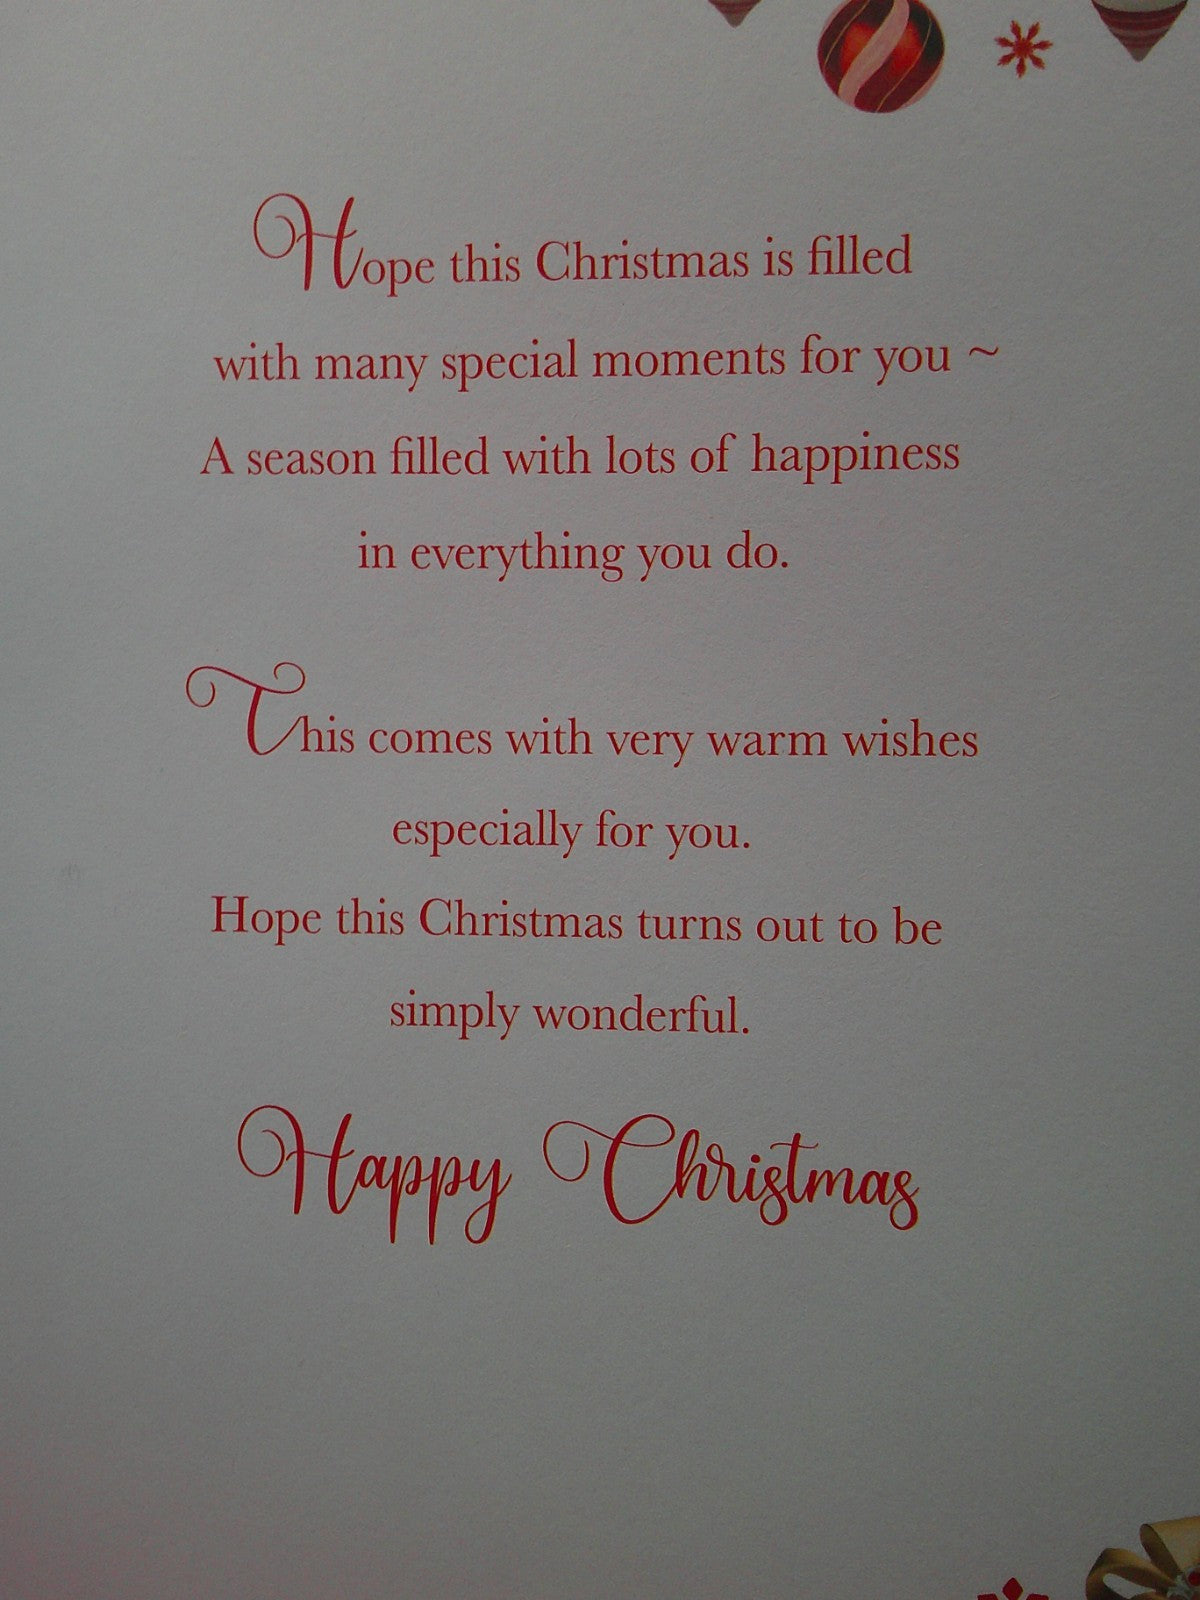 Hope this Christmas is filled
with many special moments for you ~
A season filled with lots of happiness
in everything you do.
This comes with very warm wishes
especially for you.
Hope this Christmas turns out to be
simply wonderful.
Happy Christmas